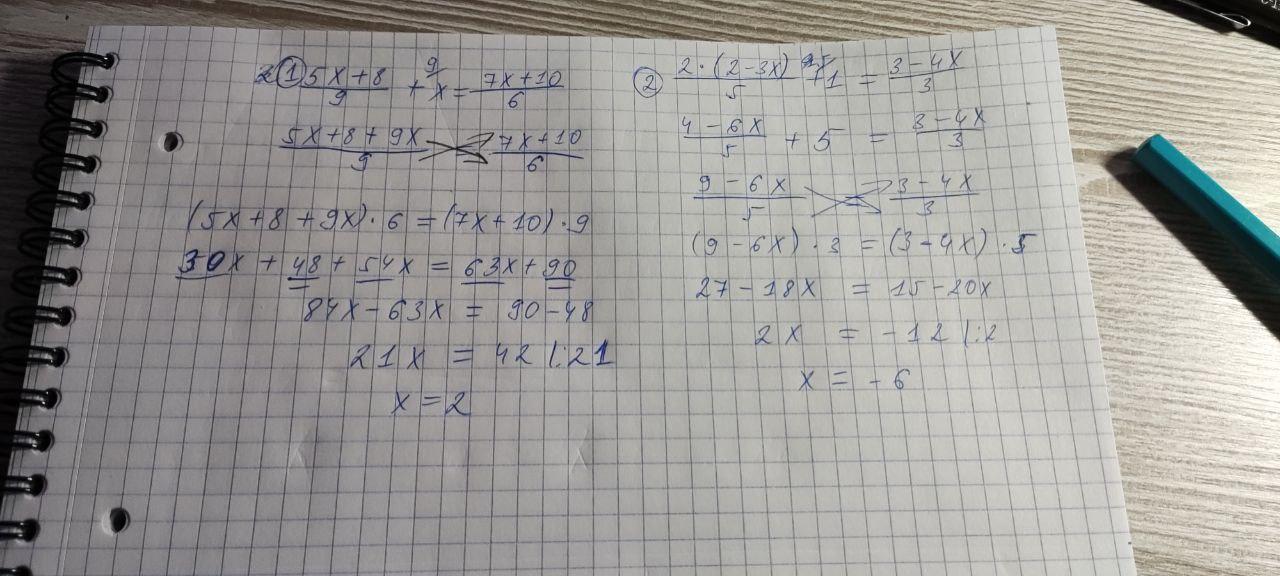 ① (5x+8)/9 + ⁹/x = (7x+10)/6
(5x+8+9x)/9 = (7x+10)/6
(5x+8+9x)·6 = (7x+10)·9
30x + 48 + 54x = 63x + 90
84x - 63x = 90 - 48
21x = 42 |:21
x = 2
② 2·(2-3x)/5 + 1 = (3-4x)/3
(4-6x)/5 + 5 = (3-4x)/3
(9-6x)/5 = (3-4x)/3
(9-6x)·3 = (3-4x)·5
27-18x = 15-20x
2x = -12 |:2
x = -6